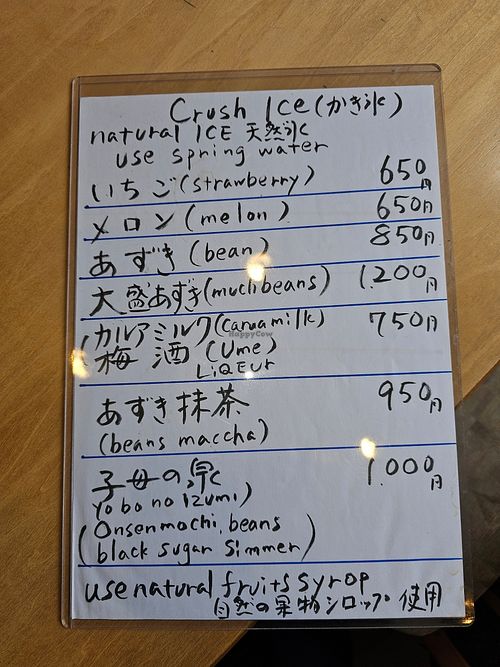 Crush Ice(かき氷)
natural ICE 天然氷
use spring water
いちご(strawberry) 650円
メロン(melon) 650円
あずき(bean) 850円
大盛あずき(muchbeans) 1.200円
カルアミルク(caruamilk) 750円
梅酒(Ume)
LiQEUr
あずき抹茶 950円
(beans maccha)
子母の泉 1.000円
yobo no Izumi)
(Onsenmochi, beans
black sugar simmer)
use natural fruits syrop
自然の果物シロップ使用
HappyCow